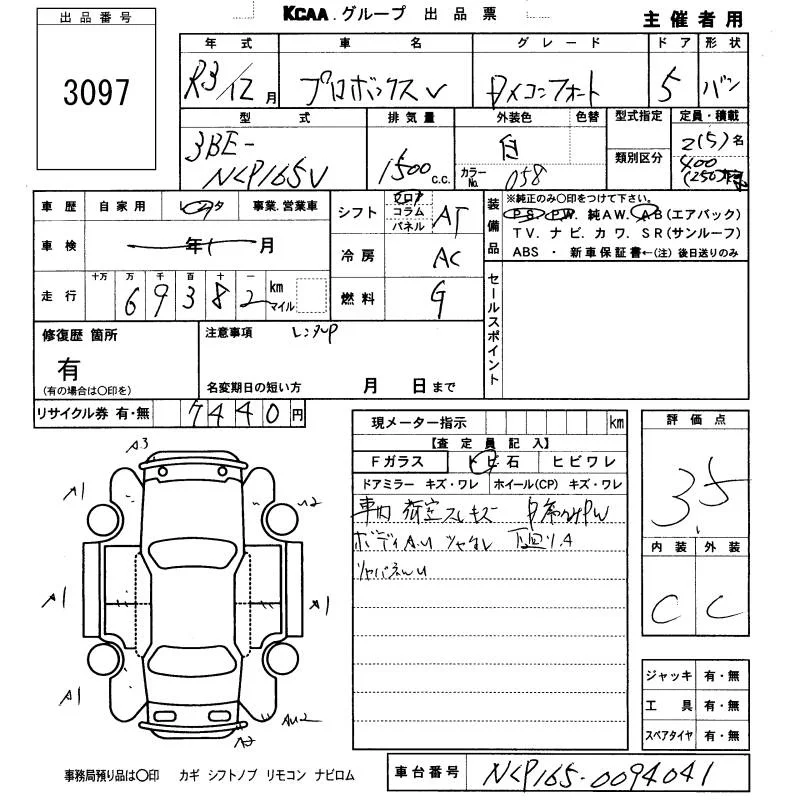 出品番号
3097
KCAA.グループ 出品票
主催者用
年式 車名 グレード ドア 形状
R3/12月 プロボックスV DXコンフォート 5 バン
型式 排気量 外装色 色替 型式指定 定員・積載
3BE-NCP165V 1500c.c. 白 類別区分 2(5)名
カラーNo. 058 400(250)
車歴 自家用 レンタ 事業.営業車
車検 年 月
走行 十万 万 千 百 十 一 km マイル
69382
シフト フロア コラム パネル AT
冷房 AC
燃料 G
装備品
※純正のみ〇印をつけて下さい。
PS. PW. 純AW. AB(エアバック)
TV. ナビ. カワ. SR(サンルーフ)
ABS ・ 新車保証書←(注) 後日送りのみ
セールスポイント
修復歴 箇所
有
(有の場合は〇印を)
注意事項 レンタUP
名変期日の短い方 月 日まで
リサイクル券 有・無 7440円
現メーター指示 km
【査定員記入】
Fガラス トビ石 ヒビワレ
ドアミラー キズ・ワレ ホイール(CP) キズ・ワレ
車内 荷室スレキズ
ボディA.U
評価点
3.5
内装 外装
C C
A3
A1
A1
A1
A1
A2
ジャッキ 有・無
工具 有・無
スペアタイヤ 有・無
事務局預り品は〇印 カギ シフトノブ リモコン ナビロム
車台番号 NCP165-0094041